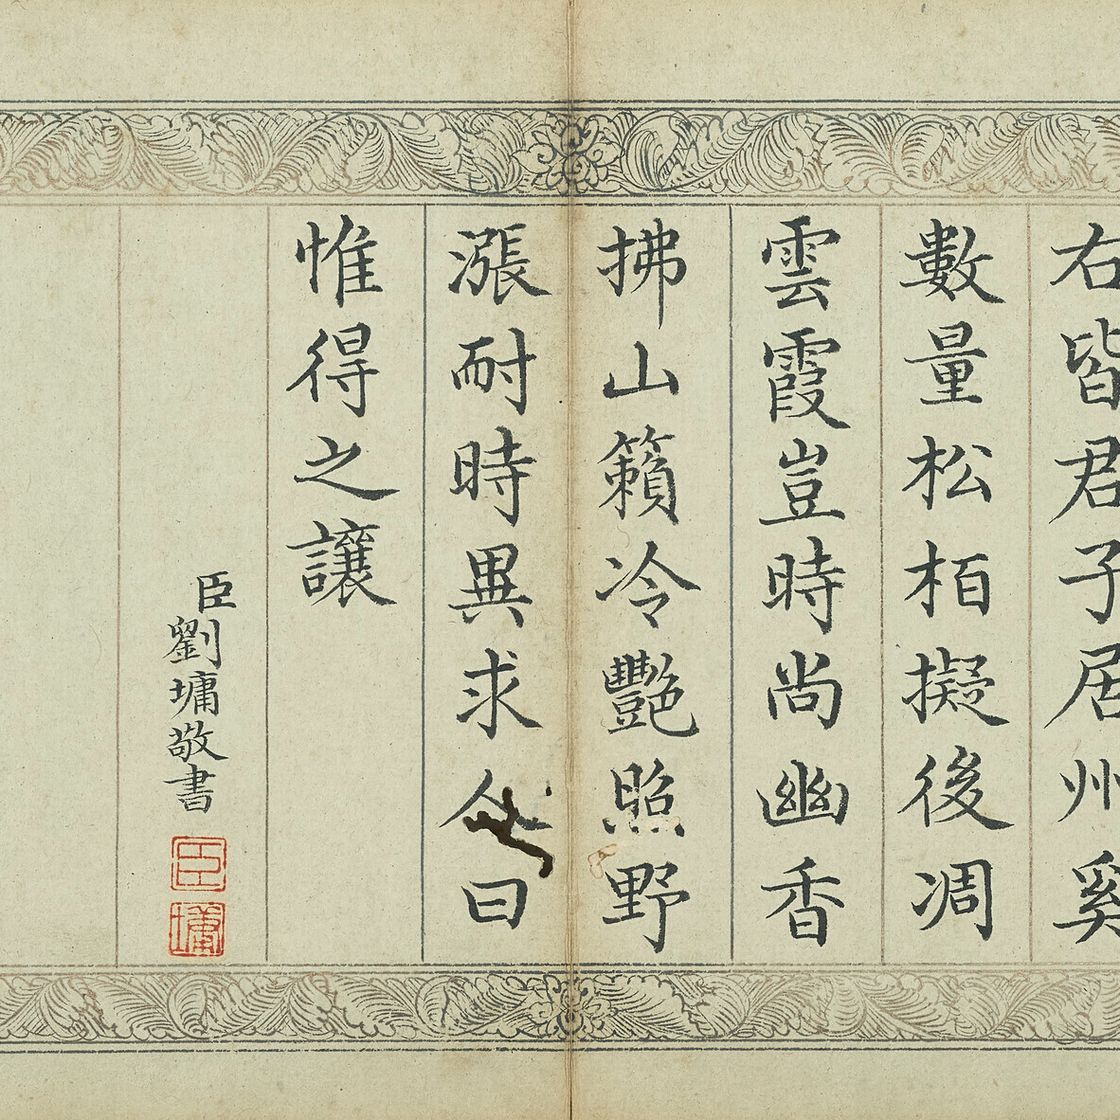 右皆君子居州奚
數量松栢擬後凋
雲霞豈時尚幽香
拂山籟冷艷照野
漲耐時異求今曰
惟得之讓
臣劉墉敬書
臣
墉